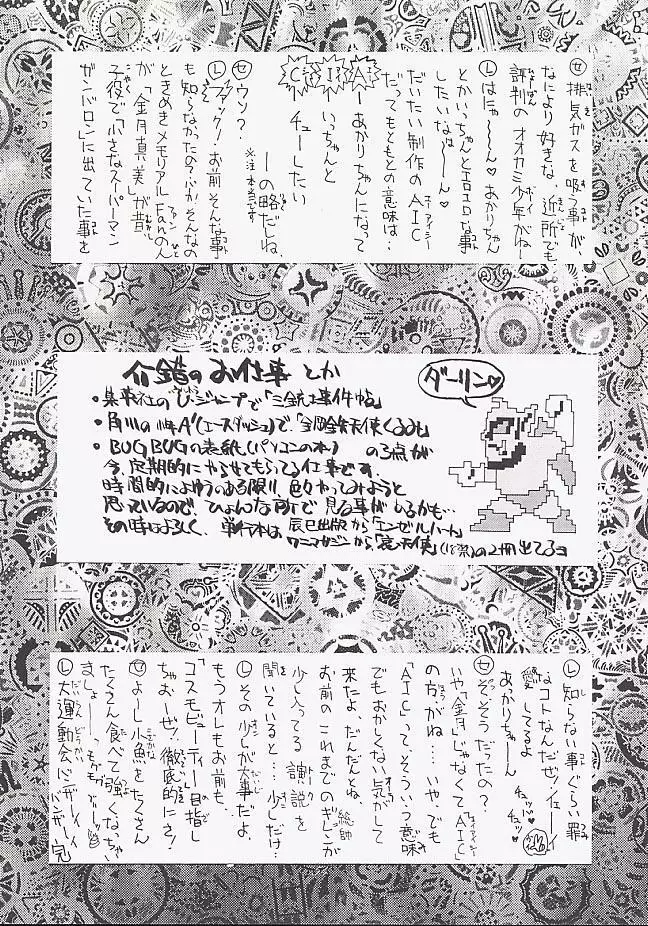 ㋝排気ガスを吸う事が、
なにより好きな、近所でも
評判のオオカミ少年がねー
㋹はにゃ〜〜ん♡あかりちゃん
とかいっちゃんとエロエロな事
したいなぁ〜〜ん♡
だいたい制作のAIC
だってもともとの意味は…
A―あかりちゃんになって
I―いっちゃんと
C チューしたい
―の略だしね、
※注 本気です
㋝ウソ?
㋹ファック!お前そんな事
も知らなかったのか。そんなの
ときめきメモリアルFanのん
が「金月真美」が昔
子役で「小さなスーパーマン
ガンバロン」に出ていた事を
介錯のお仕事とか
ダーリン♡
・集英社のV・ジャンプで「三銃士事件帖」
・角川の少年A'(エースダッシュ)で、「鋼鉄天使くるみ」
・BUG BUGの表紙(パソコンの本)の3点が
今、定期的にやらせてもらってる仕事です、
時間的によゆうのある限り、色々やってみようと
思っているので、ひょんな所で見る事がしるかも…
その時はよろしく、単行本は、辰巳出版から「エンゼルハート」
ワニマガジンから、「天使」の2冊出てるヨ
㋹知らない事ぐらい罪
なコトなんだぜッイェーイ
愛してるよ
あっかりちゃーん チュッ♡チュッ♡
㋝そ、そうだったの?
いや「金月」じゃなくて「AIC」
の方がね…いや、でも
「AIC」って、そういう意味
でもおかしくない気がして
来たよ、だんだんとね
お前のこれまでのギレン総帥が
少し入ってる演説を
聞いていると…少しだけ…
㋹その少しが大事だよ、
もうオレもお前も、
「コスモビューティー」目指し
ちゃおーぜ!徹底的にさ!
㋝よーし小魚をたくさん
たくさん食べて強くなっちゃい
ましょーーっモグモグ
㋹大運動会バンザーイ
バンザーイ 完